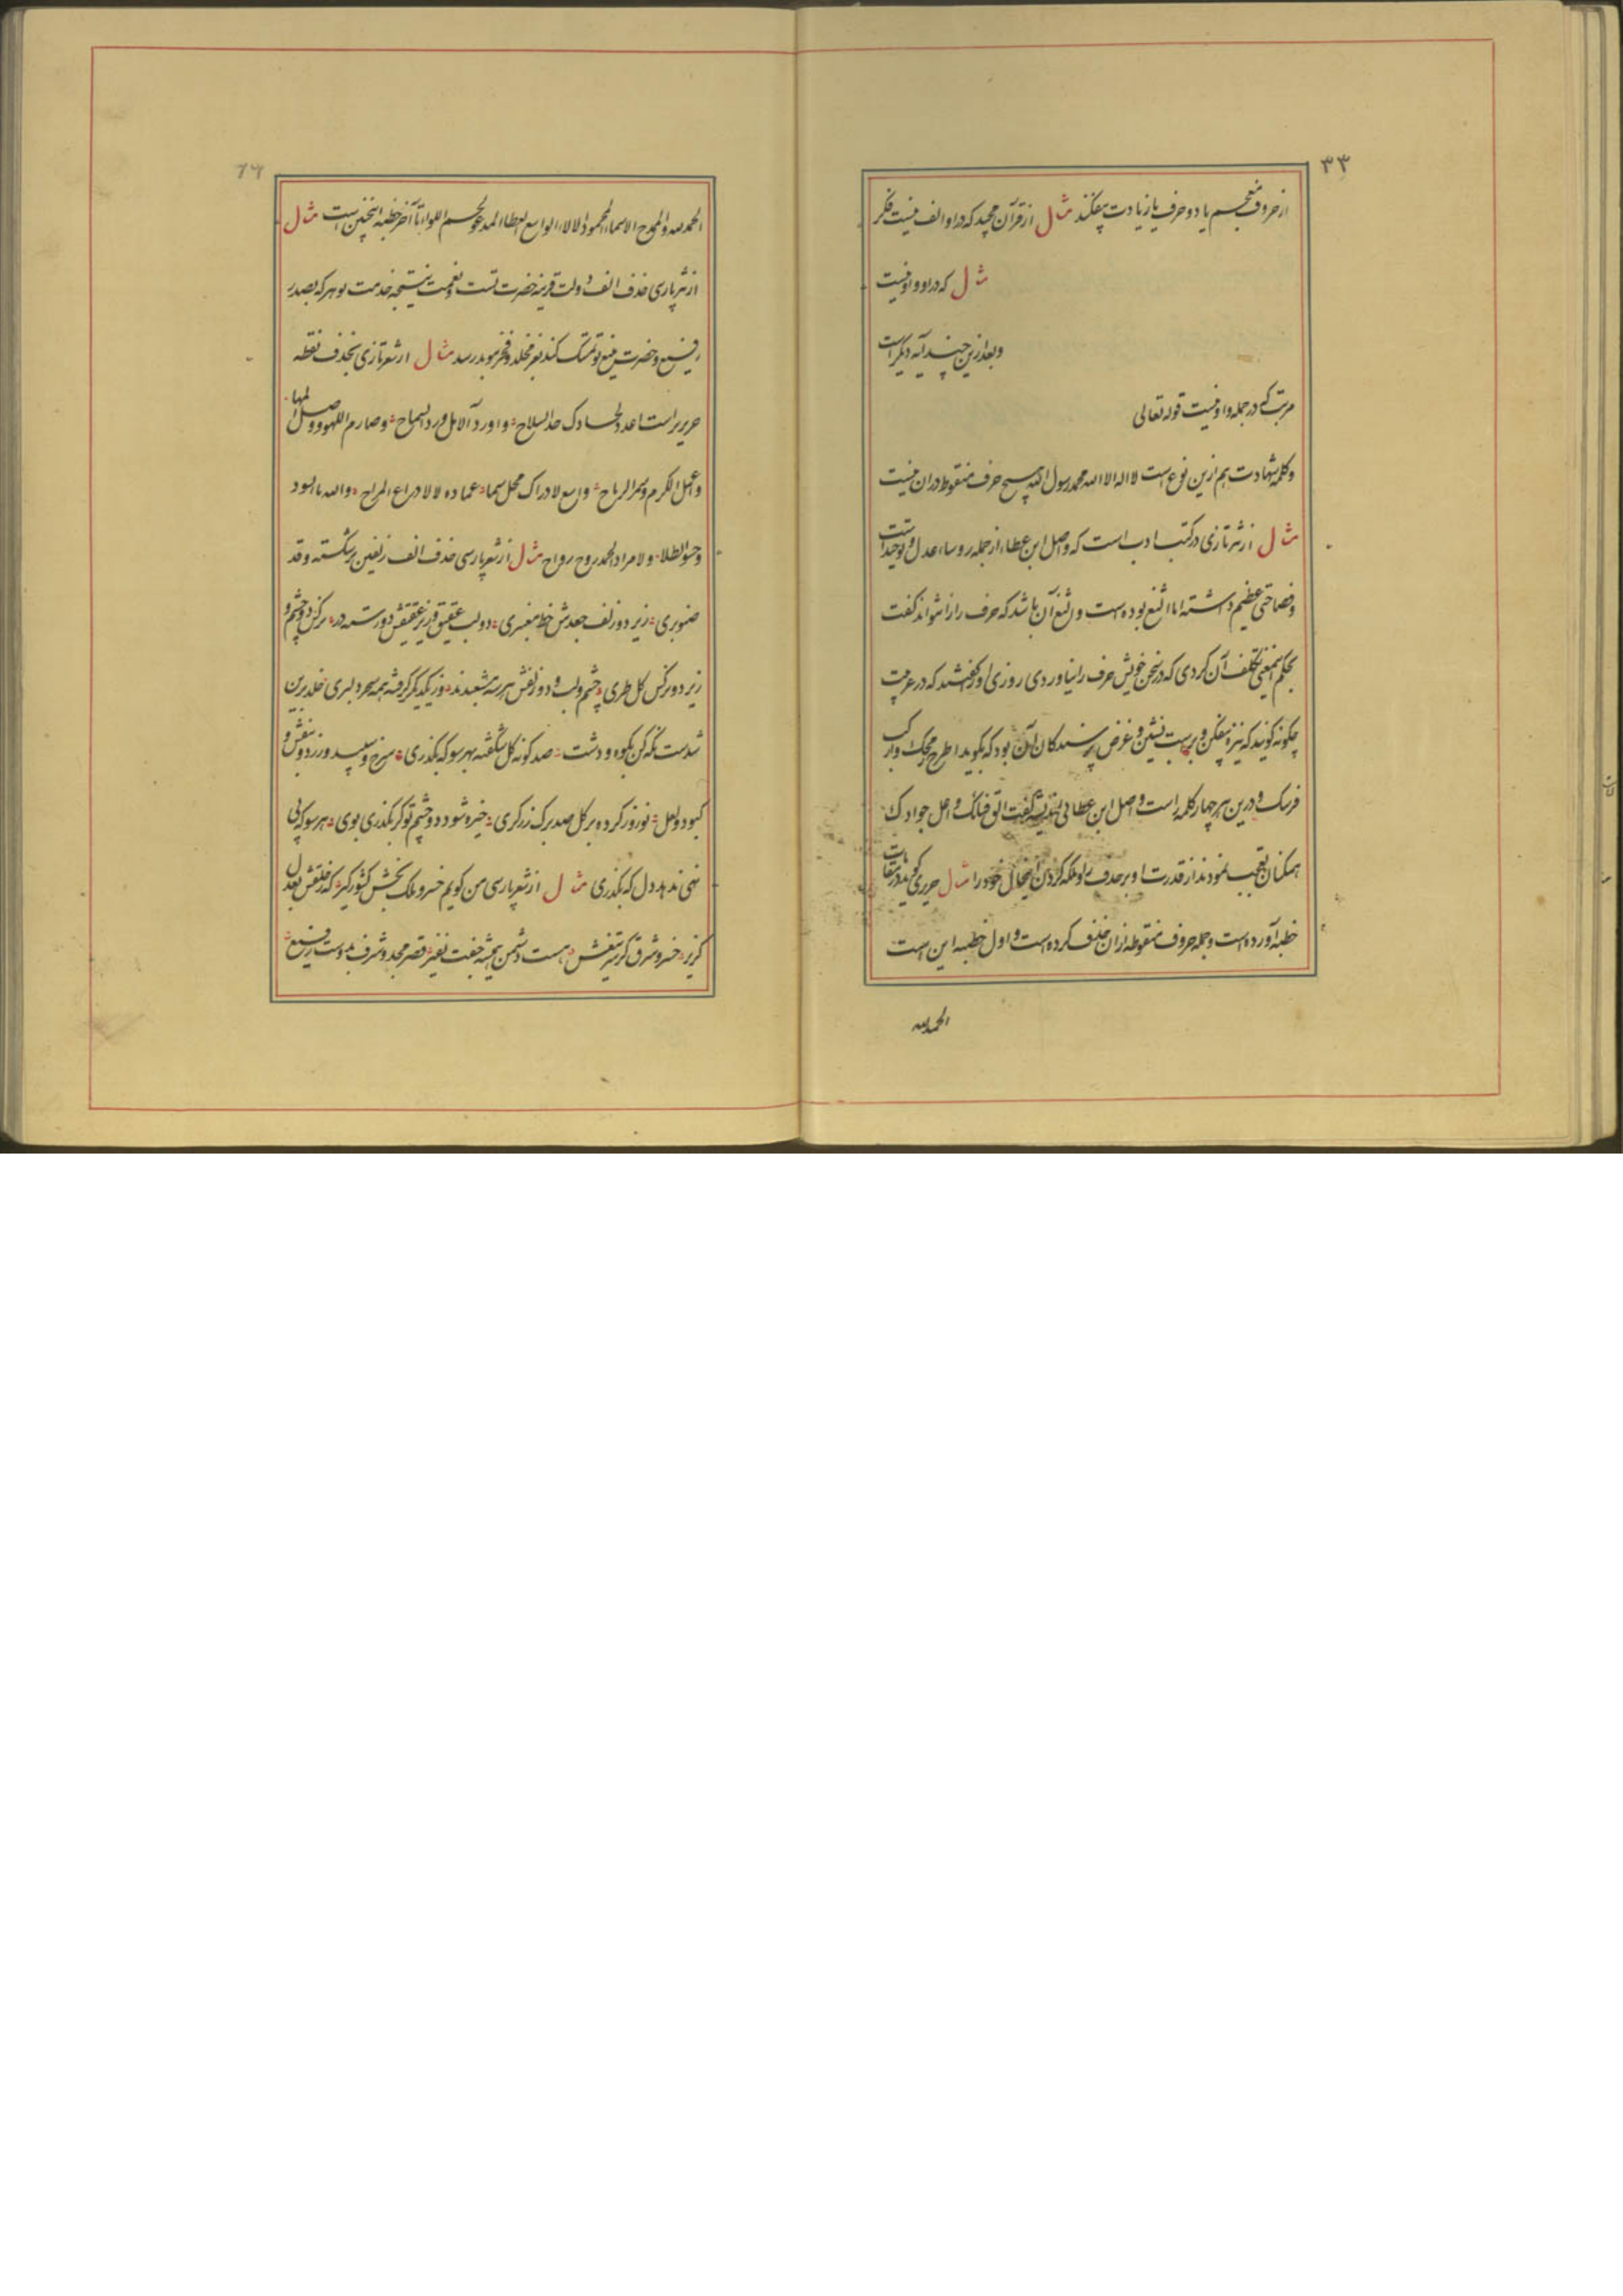 ۳۳
از حروف معجم یا دو حرف یا زیادت بیفکند مثال از قرآن مجید که در او الف نیست فکر
مثال که در او واو نیست
و بعد ازین چند آیه دیگر است
مرتب که در جمله واو نیست قوله تعالی
و کلمه شهادت هم ازین نوع است لا اله الا الله محمد رسول الله هیچ حرف منقوط در ان نیست
مثال از نثر تازی در کتب ادب است که واصل ابن عطا از جمله روساء اعدل و توحید است
و فصاحتی عظیم داشته اما الثغ بوده است و الثغ آن باشد که حرف را را نتواند گفت
بحکم اینمعنی تکلف آن کردی که در سخن خویش حرف را نیاوردی روزی او را گفتند که در عربیت
چگونه گویند که نیزه بیفکن و بر اسب نشین و غرض پرسندکان آن بود که بگوید اطرح رمحک وارکب
فرسک و درین هر چهار کلمه را است واصل ابن عطا بی اندیشه گفت الق قناتک و اعل جوادک
همکنان تعجب نمودند از قدرت او بر حذف را و ملکه کردن اینحال خود را مثال حریری گوید در مقامات
خطبه آورده است و جمله حروف منقوطه از ان حذف کرده است و اول خطبه این است
الحمدلله
الحمدلله الممدوح الاسماء المحمود الالاء الواسع العطاء المدعو لحسم اللواء تا آخر خطبه اینچنین است مثال
از نثر پارسی حذف الف دولت قرینه حضرت تست و نعمت نتیجه خدمت تو هر که بصدر
رفیع و حضرت منیع تو تمسک کند بعز مخلد و فخر موبد رسد مثال از شعر تازی بحذف نقطه
حریر راست اعدد لحسادک حد السلاح و اورد الآمل ورد السماح و صارم اللهو و وصل المها
و اعمل الکرم و سمر الرماح واسع لادراک محل سما عماده لا لادراع المراح والله ما السود
و حسو الطلا و لا مراد الحمد روح رواح مثال از شعر پارسی حذف الف زلفین بر شکسته و قد
صنوبری زیر دو زلف جعدش خط معنبری دو لب عقیق و زیر عقیقش دو رسته در نرکس دو چشم و
زیر دو نرکس کل طری چشم و لب و دو زلفش هر سه مشعبدند وز یکدیگر گرفته همه سحر دلبری خلد برین
شدست نگه کن بکوه و دشت صد گونه گل شگفته بهر سو که بگذری سرخ و سپید و زرد و بنفش و
کبود و لعل نوروز کرده بر گل صد برگ زرگری خیره شود دو چشم تو گر بگذری بوی هر سو که پی
نهی ندهد دل که بگذری مثال از شعر پارسی من گویم خسرو ملک بخش کشور گیر که ز خلقش بعدل
گزیر خسرو شرق کز سر تیغش هست دشمن همیشه جفت نفیر قصر مجد و شرف بدوست رفیع